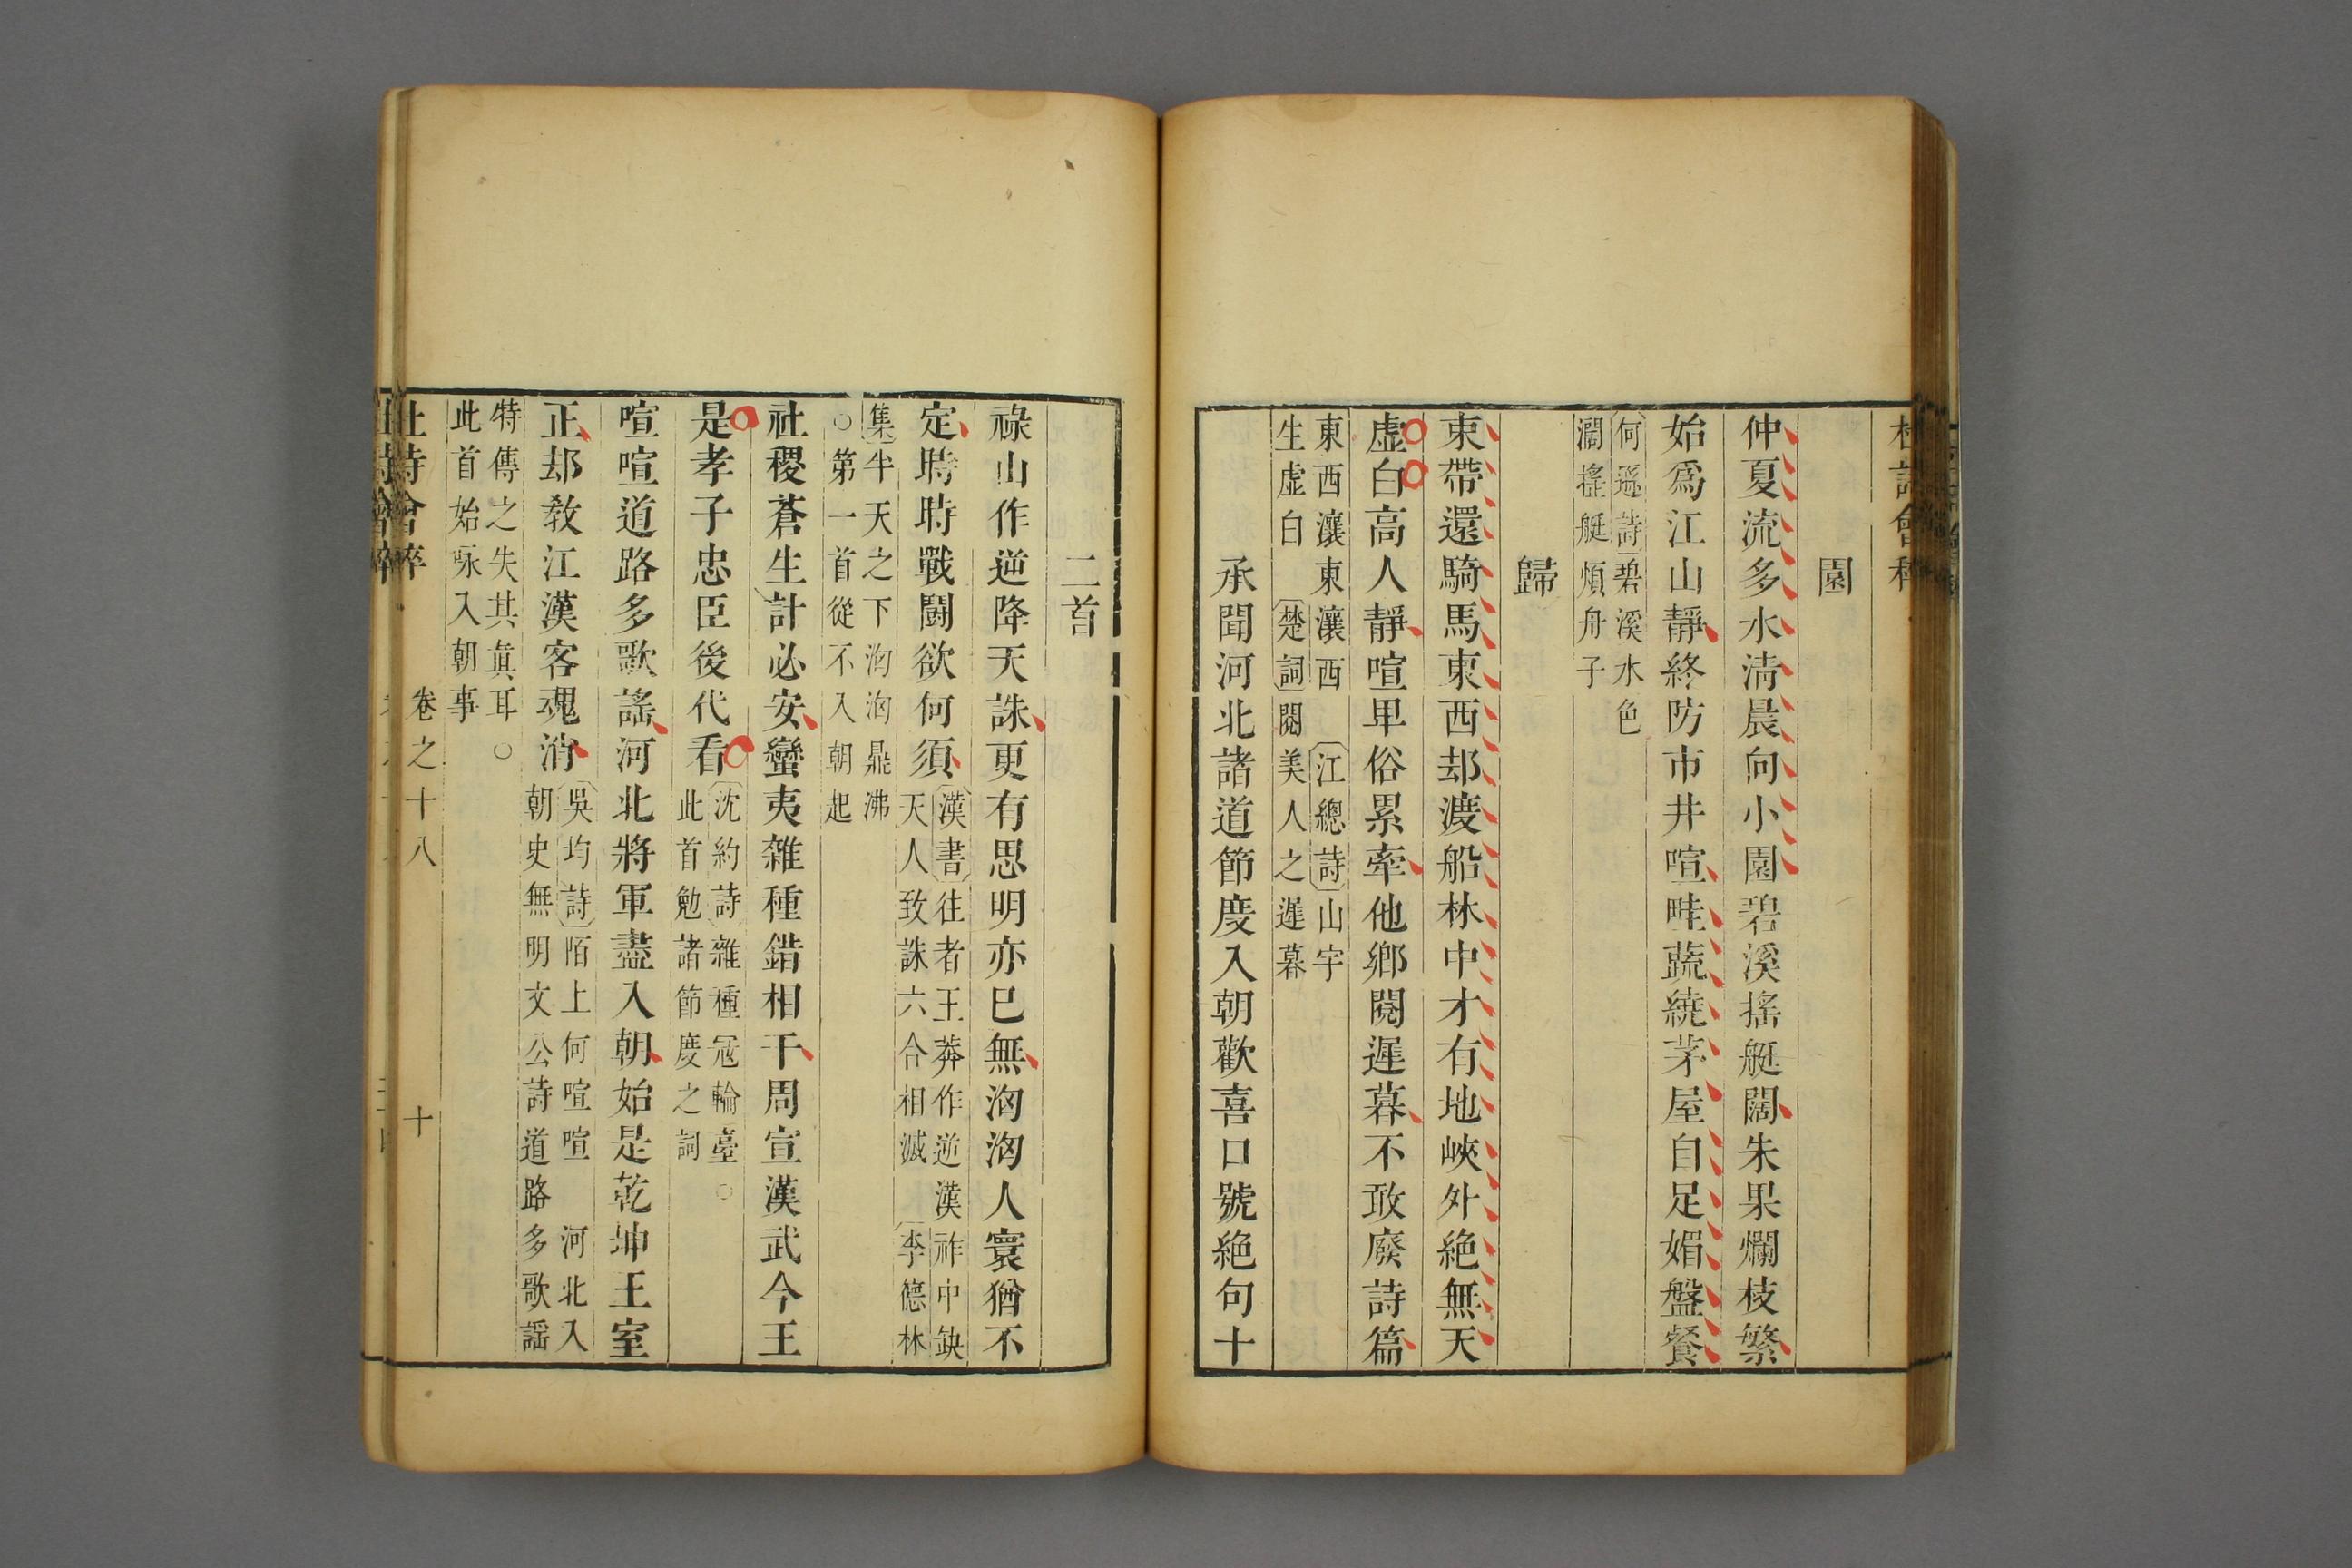 園
仲夏流多水清晨向小園碧溪搖艇闊朱果爛枝繁
始爲江山靜終防市井喧畦蔬繞茅屋自足媚盤餐
何遜詩碧溪水色
濶搖艇煩舟子
歸
束帶還騎馬東西却渡船林中才有地峽外絶無天
虛白高人靜喧卑俗累牽他鄉閱遲暮不敢廢詩篇
東西瀼東瀼西 江總詩山宇
生虛白 楚詞閱美人之遲暮
承聞河北諸道節度入朝歡喜口號絶句十
二首
祿山作逆降天誅更有思明亦已無洶洶人寰猶不
定時時戰鬬欲何須
漢書往者王莽作逆漢祚中缺
天人致誅六合相滅 李德林
集半天之下洶洶鼎沸
○第一首從不入朝起
社稷蒼生計必安蠻夷雜種錯相干周宣漢武今王
是孝子忠臣後代看
沈約詩雜種冠輪臺○
此首勉諸節度之詞
喧喧道路多歌謠河北將軍盡入朝始是乾坤王室
正却敎江漢客魂消
吳均詩陌上何喧喧 河北入
朝史無明文公詩道路多歌謡
特傳之失其眞耳○
此首始咏入朝事
杜詩會稡 卷之十八 十